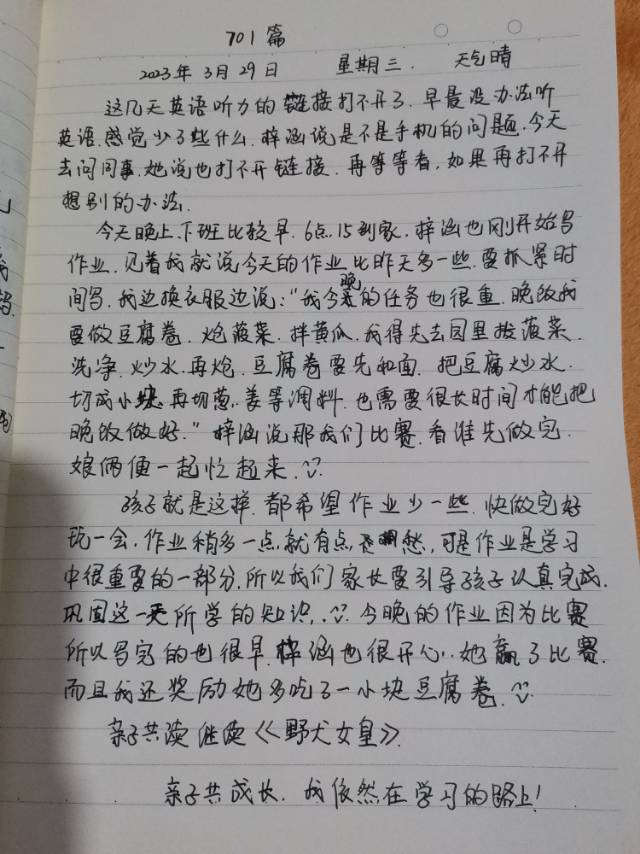 701篇
2023年3月29日 星期三. 天气晴
这几天英语听力的链接打不开了.早晨没办法听
英语.感觉少了些什么.梓涵说是不是手机的问题.今天
去问同事.她说也打不开链接.再等等看,如果再打不开
想别的办法.
今天晚上.下班比较早.6点.15到家.梓涵也刚开始写
作业.见着我就说今天的作业比昨天多一些.要抓紧时
间写.我边换衣服边说:"我今晚的任务也很重.晚饭我
要做豆腐卷.炝菠菜.拌黄瓜.我得先去园里拔菠菜.
洗净.炒水.再炝.豆腐卷要先和面.把豆腐炒水.
切成小块.再切葱.姜等调料.也需要很长时间才能把
晚饭做好."梓涵说那我们比赛.看谁先做完.
娘俩便一起忙起来.
孩子就是这样.都希望作业少一些.快做完好
玩一会.作业稍多一点.就有点愁,可是作业是学习
中很重要的一部分.所以我们家长要引导孩子认真完成.
巩固这一天所学的知识.今晚的作业因为比赛
所以写完的也很早.梓涵也很开心..她赢了比赛.
而且我还奖励她多吃了一小块豆腐卷.
亲子共读继续《野犬女皇》.
亲子共成长.我依然在学习的路上!